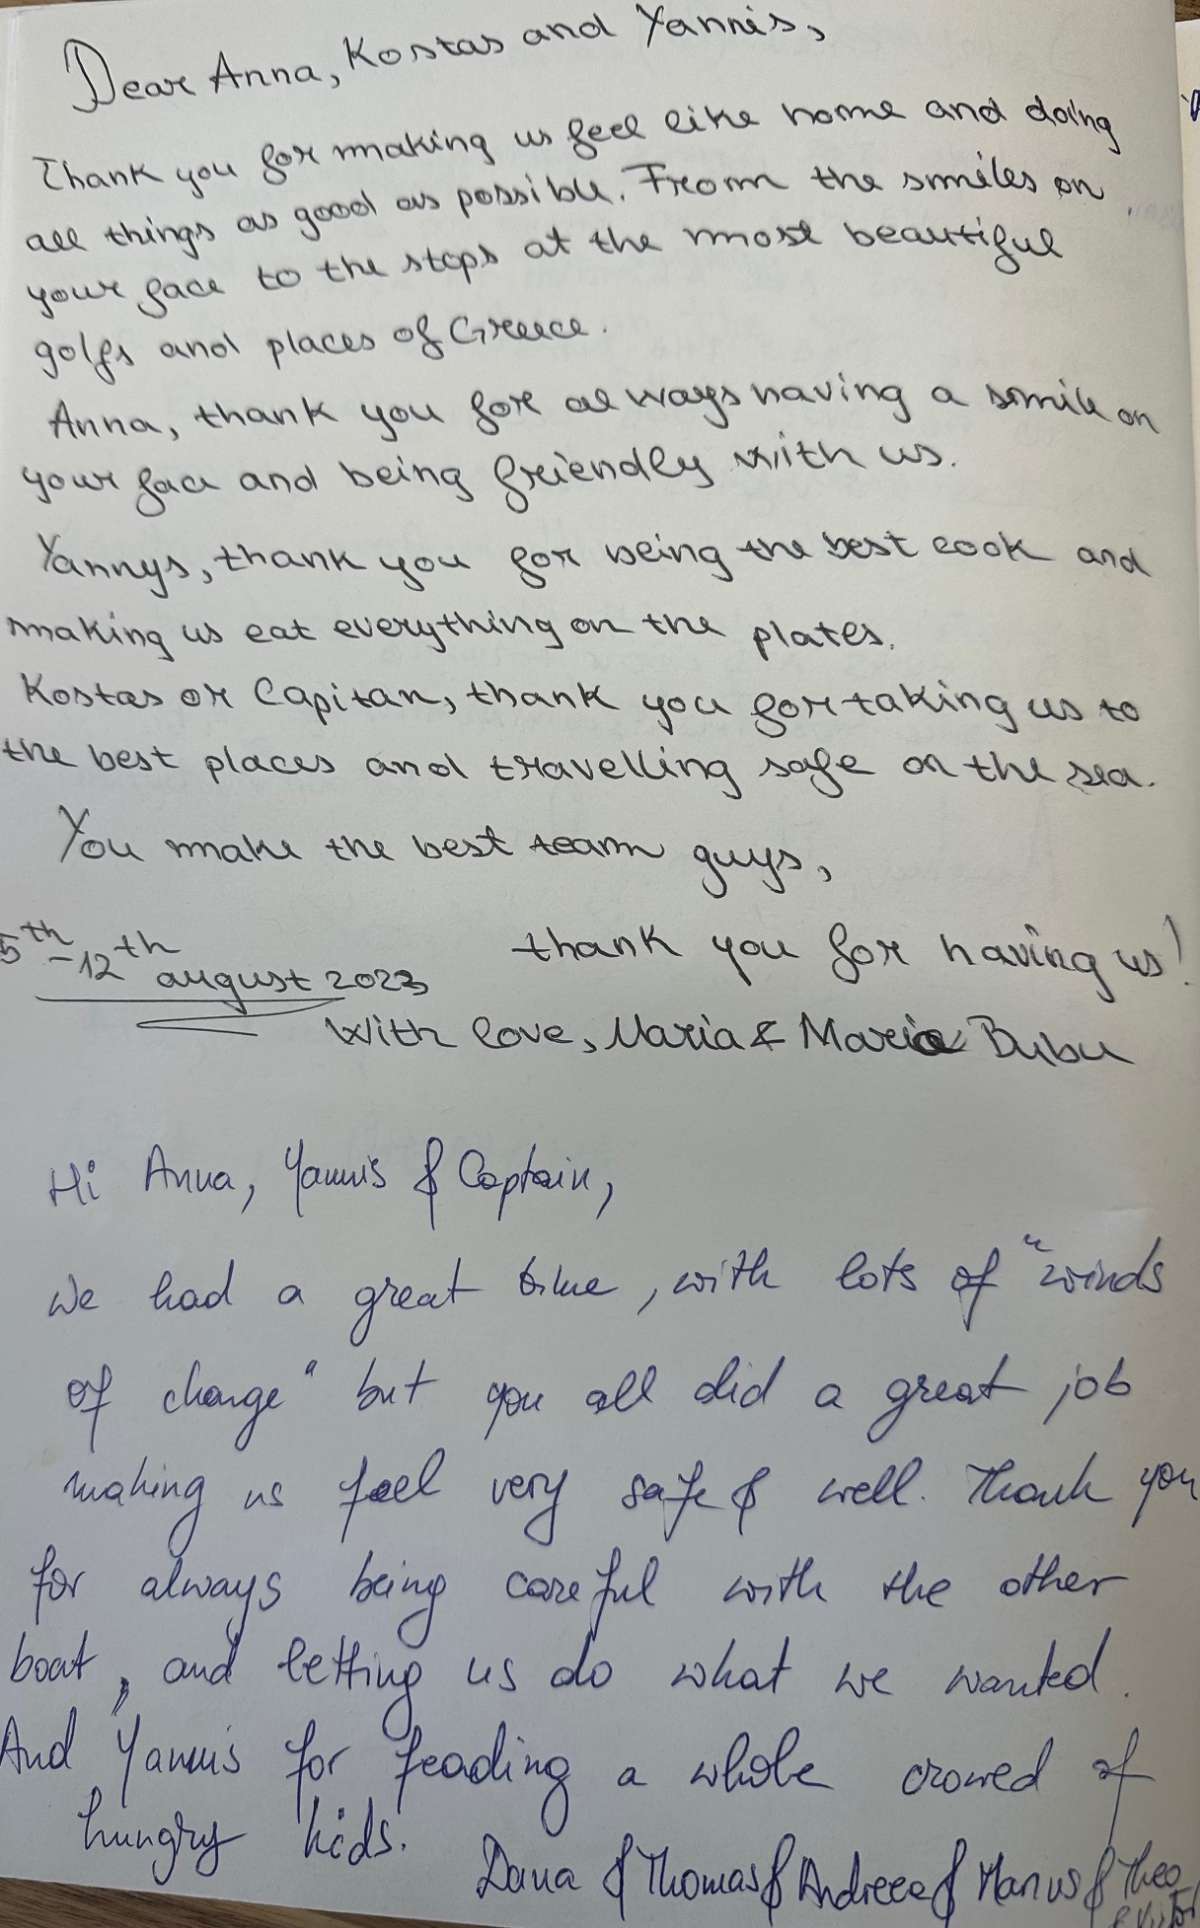 Dear Anna, Kostas and Yannis,
Thank you for making us feel like home and doing
all things as good as possible. From the smiles on
your face to the stops at the most beautiful
golfs and places of Greece.
Anna, thank you for always having a smile on
your face and being friendly with us.
Yannys, thank you for being the best cook and
making us eat everything on the plates.
Kostas or Capitan, thank you for taking us to
the best places and travelling safe on the sea.
You make the best team guys,
thank you for having us!
5th-12th august 2023
With love, Maria & Maria Bubu
Hi Anna, Yannis & Captain,
We had a great time, with lots of "winds
of change" but you all did a great job
making us feel very safe & well. Thank you
for always being careful with the other
boat, and letting us do what we wanted.
And Yannis for feading a whole crowed of
hungry kids.
Dana & Thomas & Andreea & Marius & Theo